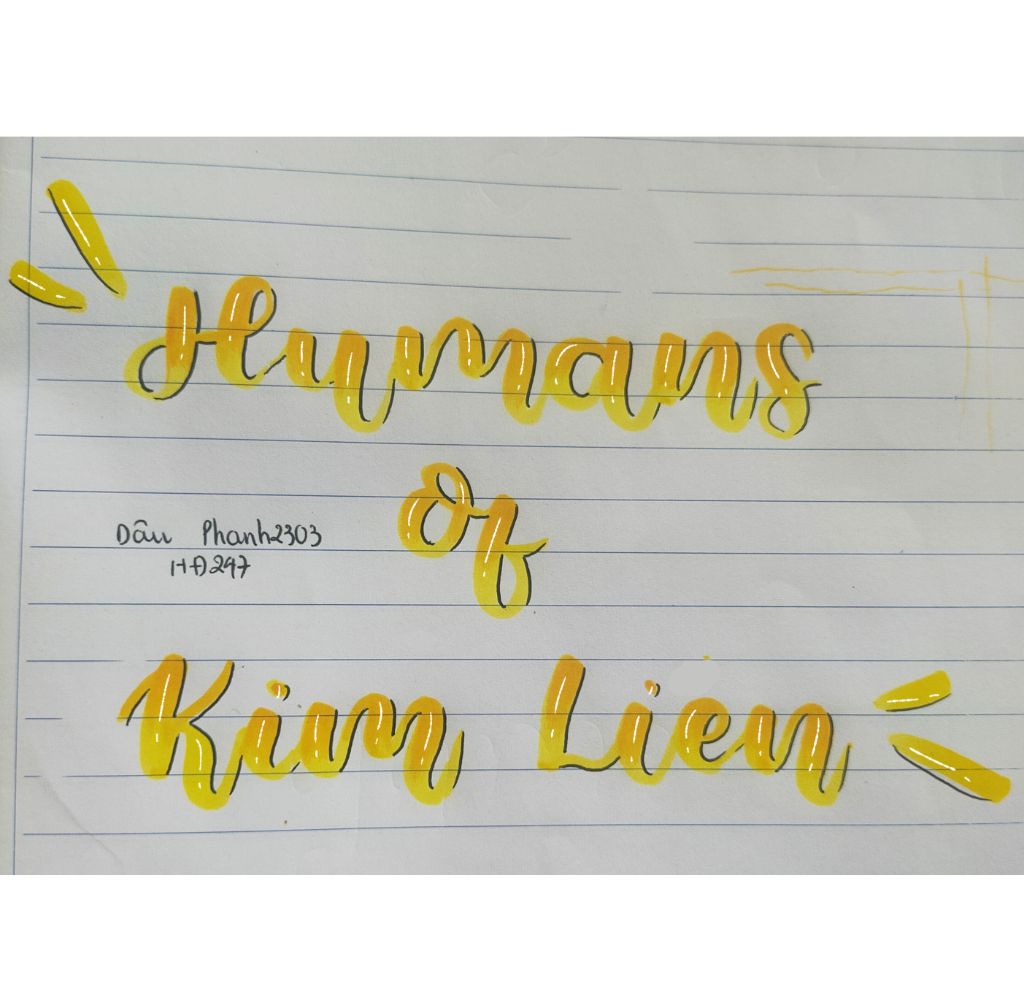 Humans
Of
Dâu Phanh2303
HĐ297
Kim Lien